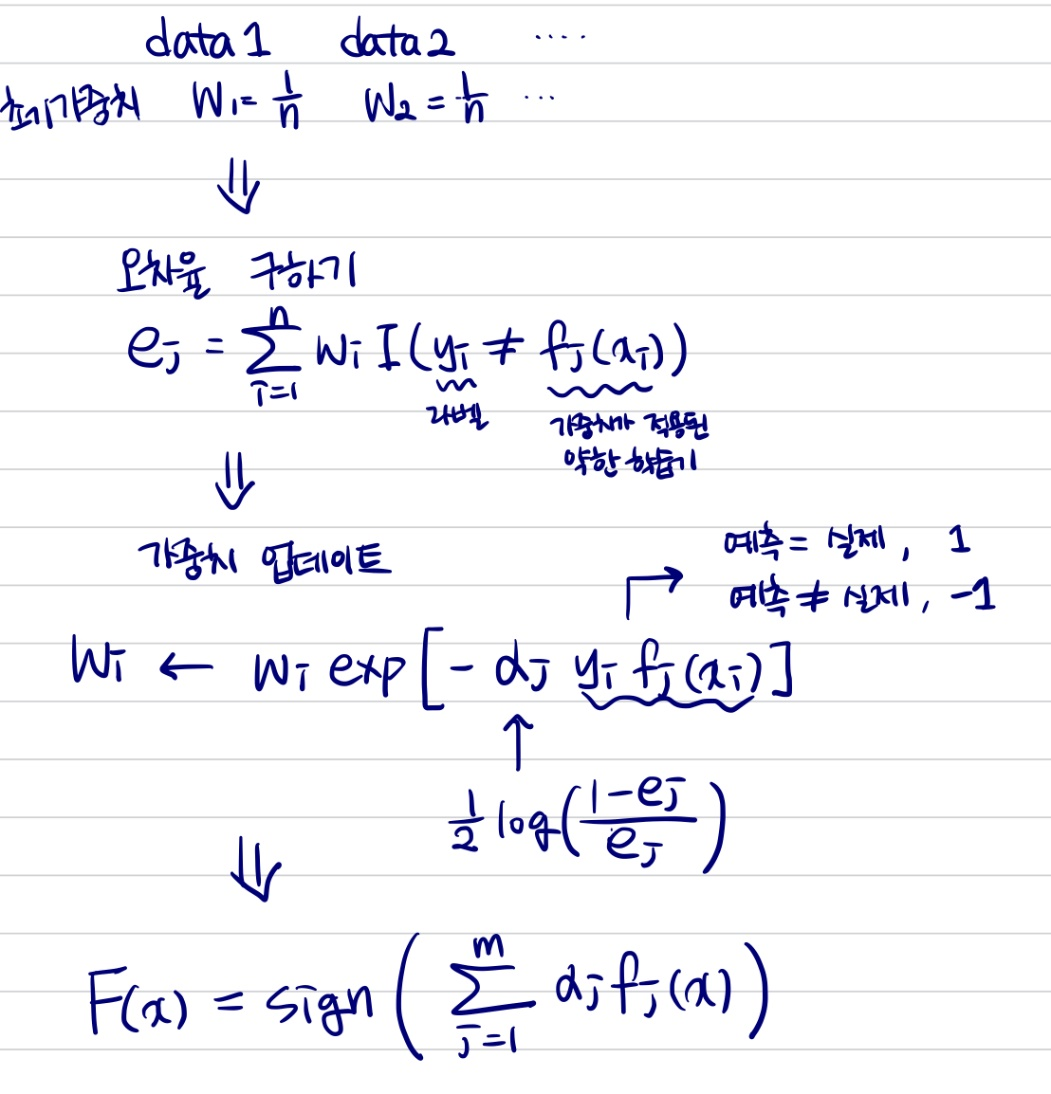 data 1 data 2 ....
초기가중치 W₁ = 1/n W₂ = 1/n ...
⇓
오차율 구하기
eⱼ = Σᵢ₌₁ⁿ wᵢ I(yᵢ ≠ fⱼ(xᵢ))
라벨
가중치가 적용된
약한 학습기
⇓
가중치 업데이트
예측 = 실제, 1
예측 ≠ 실제, -1
Wᵢ ← wᵢ exp[- αⱼ yᵢ fⱼ(xᵢ)]
↑
1/2 log((1-eⱼ)/eⱼ)
⇓
F(x) = sign(Σⱼ₌₁ᵐ αⱼ fⱼ(x))